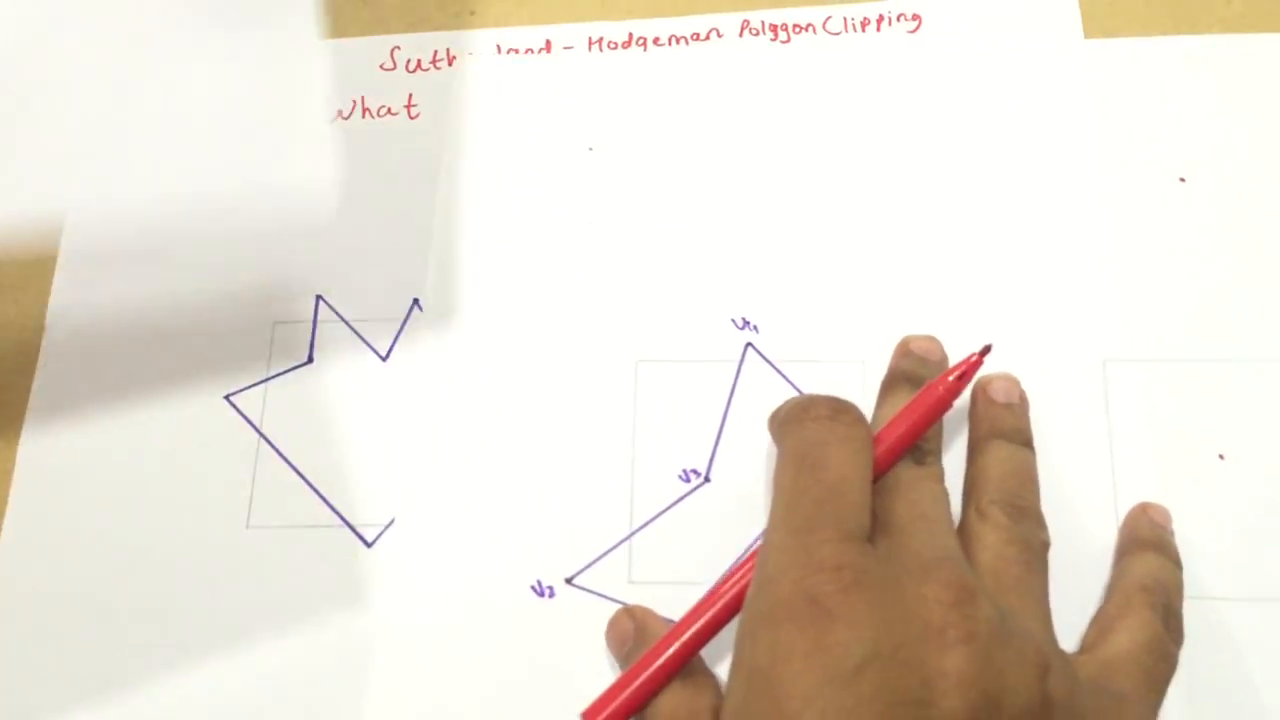 Suth land - Hodgeman Polygon Clipping
What
V4
V3
V2